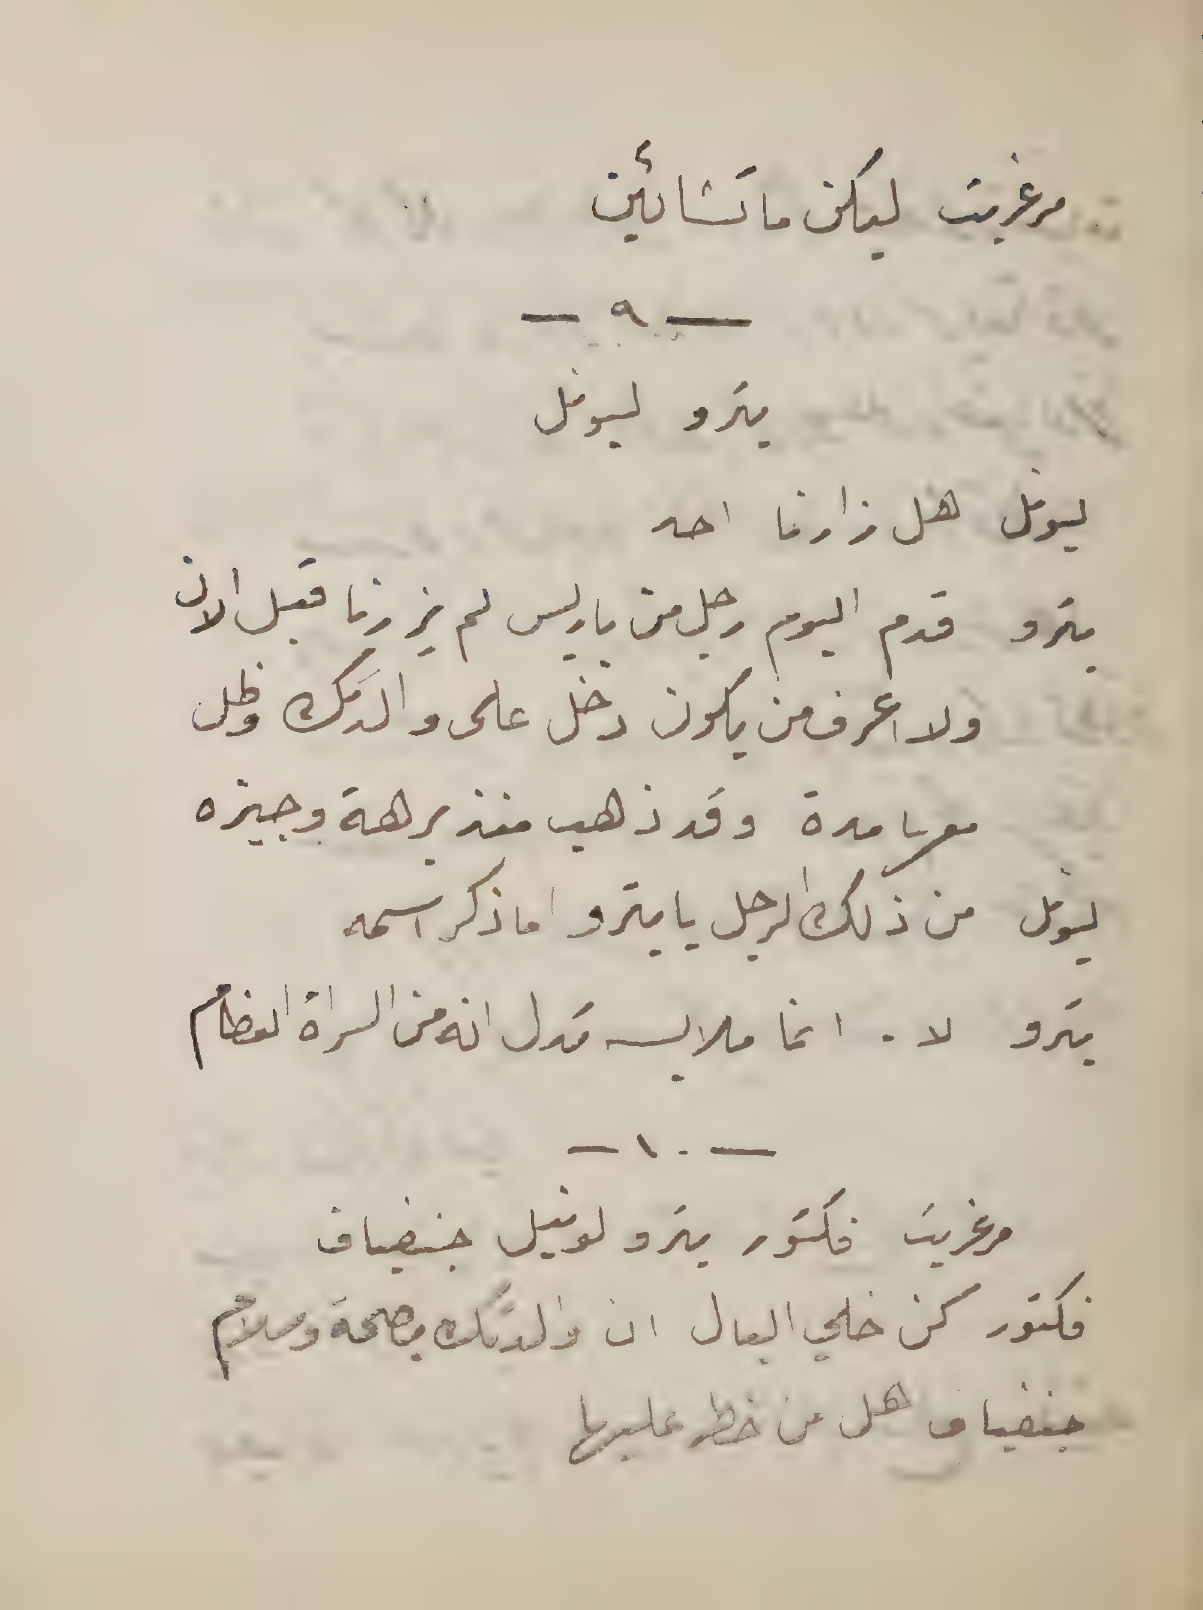 مرغريت ليكن ما تشائين
— ٩ —
بترو ليونل
ليونل هل زارنا احد
بترو قدم اليوم رجل من باريس لم يزرنا قبل الان
ولا اعرف من يكون دخل على والدتك وظل
معها مدة وقد ذهب منذ برهة وجيزه
ليونل من ذلك الرجل يا بترو اما ذكر اسمه
بترو لا . انما ملابسه تدل انه من السراة العظام
— ١٠ —
مرغريت فكتور بترو لونيل جنفياف
فكتور كن خلي البال ان والدتك بصحة وسلام
جنفياف هل من خطر عليها